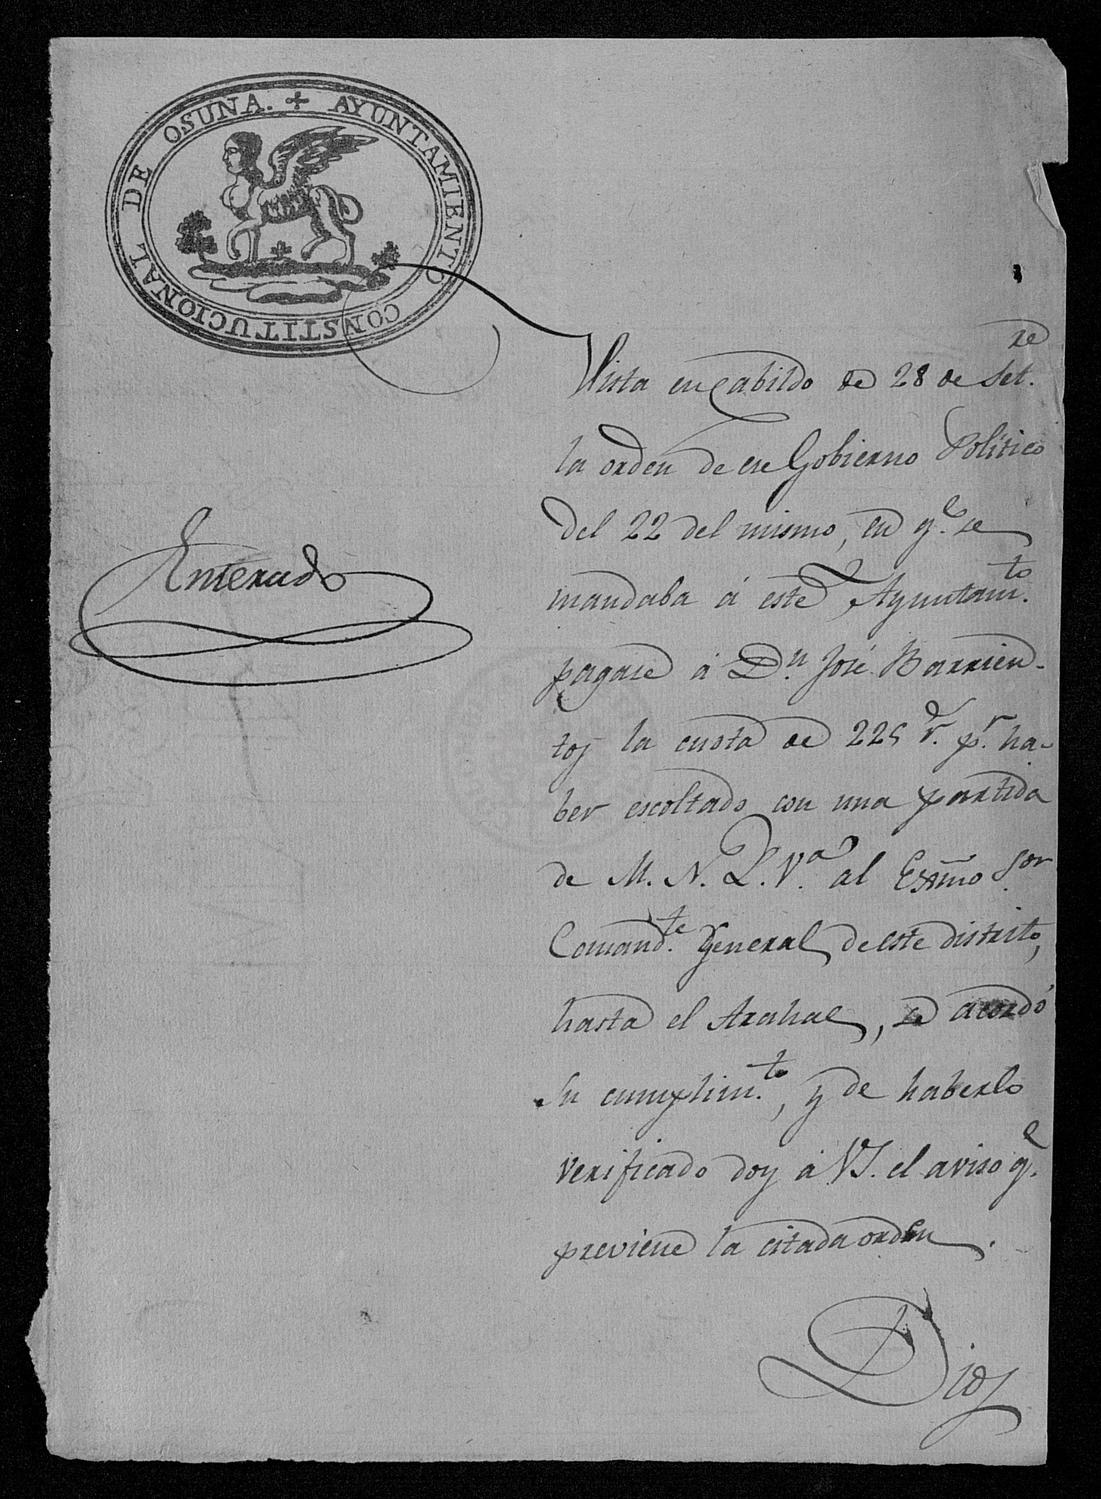 AYUNTAMIENTO CONSTITUCIONAL DE OSUNA.
Enterado
Vista en Cabildo de 28 de Set.re
la orden de ese Gobierno Politico
del 22 del mismo, en q.e se
mandaba á este Ayuntam.to
pagase á D.n José Barrien-
tos la cuota de 225 r.s p.r ha-
ber escoltado con una partida
de M. N. L. V.a al Exmo Sor
Comand.te General de este distrito,
hasta el Arahal, se acordó
su cumplim.to, y de haberlo
verificado doy á VS. el aviso q.e
previene la citada orden.
Dios